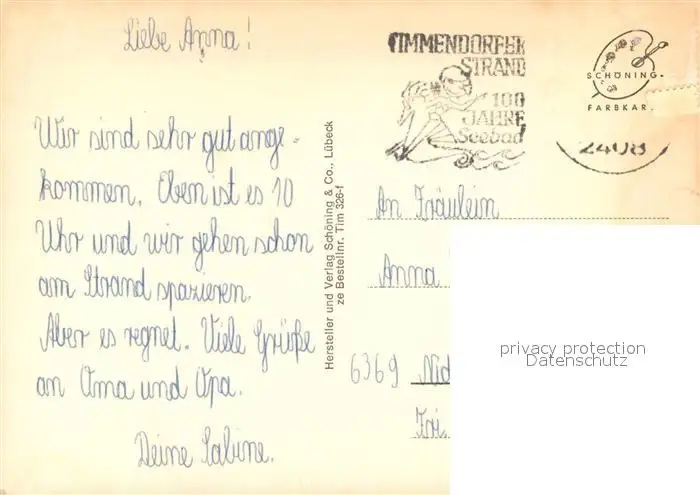 Liebe Anna!
Wir sind sehr gut ange-
kommen. Eben ist es 10
Uhr und wir gehen schon
am Strand spazieren.
Aber es regnet. Viele Grüße
an Oma und Opa.
Deine Sabine.
Hersteller und Verlag Schöning & Co., Lübeck
ze Bestellnr. Tim 326-f
TIMMENDORFER
STRAND
100
JAHRE
Seebad
SCHÖNING-
FARBKAR.
2408
An Fräulein
Anna
6369 Nid
privacy protection
Datenschutz